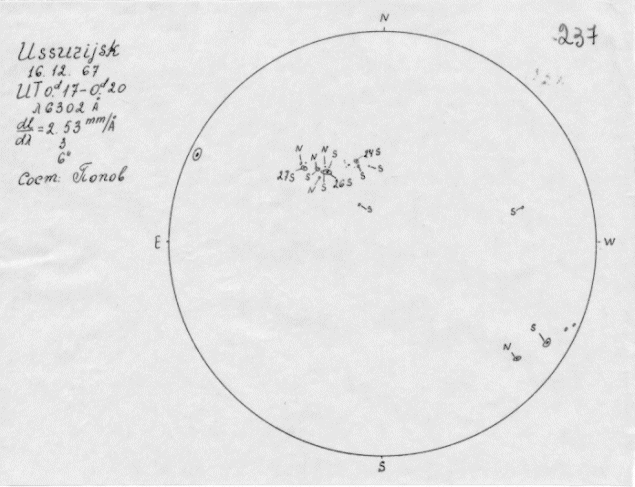 237
Ussurijsk
16. 12. 67
UT 0.ᵈ17-0.ᵈ20
λ 6302 Å
dl/dλ = 2.53 mm/Å
3
6°
Сост: Попов
N
N N N S 24S
27S S S 26S S S
N S
S S
E W
S
N
S